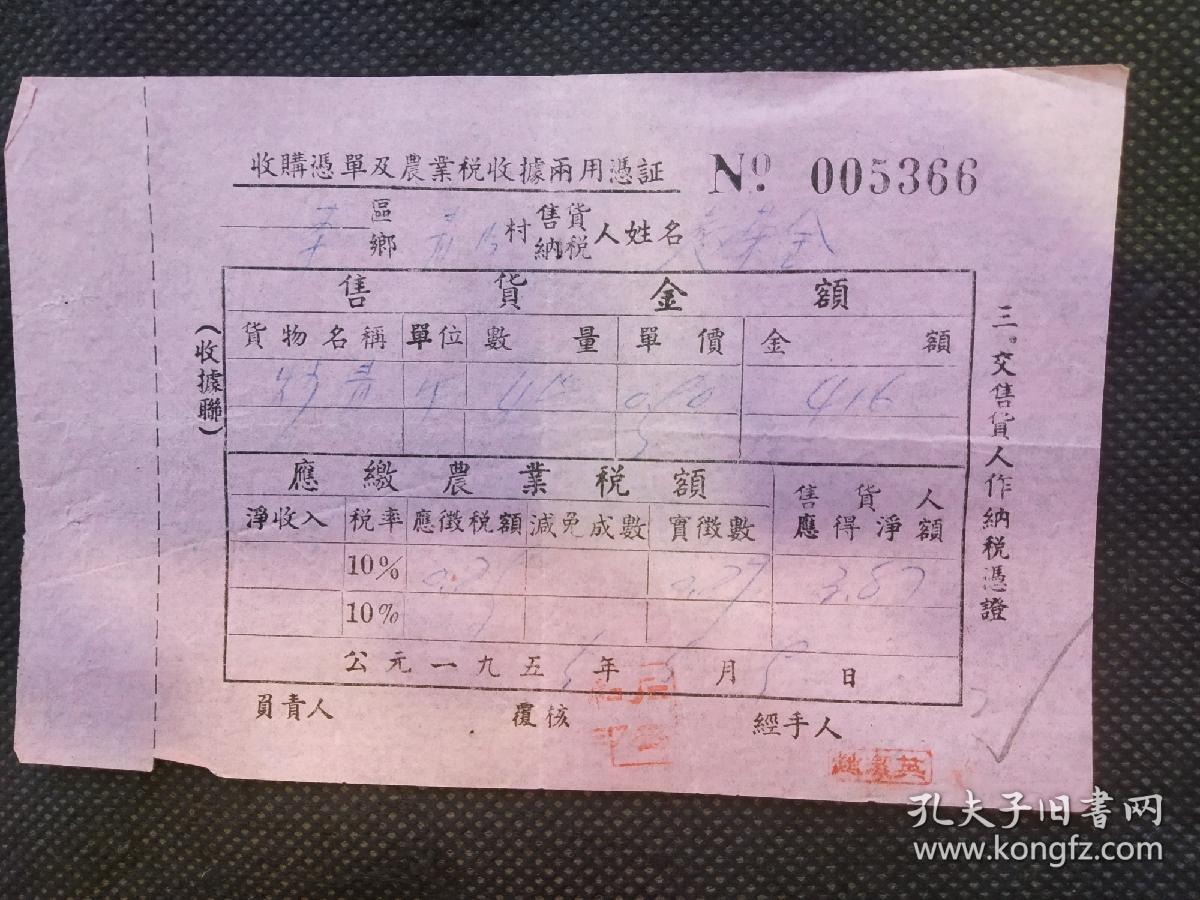 收購憑單及農業税收據兩用憑証 No. 005366
區鄉 村 售貨納税人姓名
售貨金額
貨物名稱 單位 數量 單價 金額
416
應繳農業税額 售貨人應得淨額
淨收入 税率 應徵税額 減免成數 實徵數
10% 0.29 3.87
10%
公元一九五5年5月5日
負責人 覆核 經手人
(收據聯)
三。交售貨人作納税憑證
孔夫子旧书网
www.kongfz.com